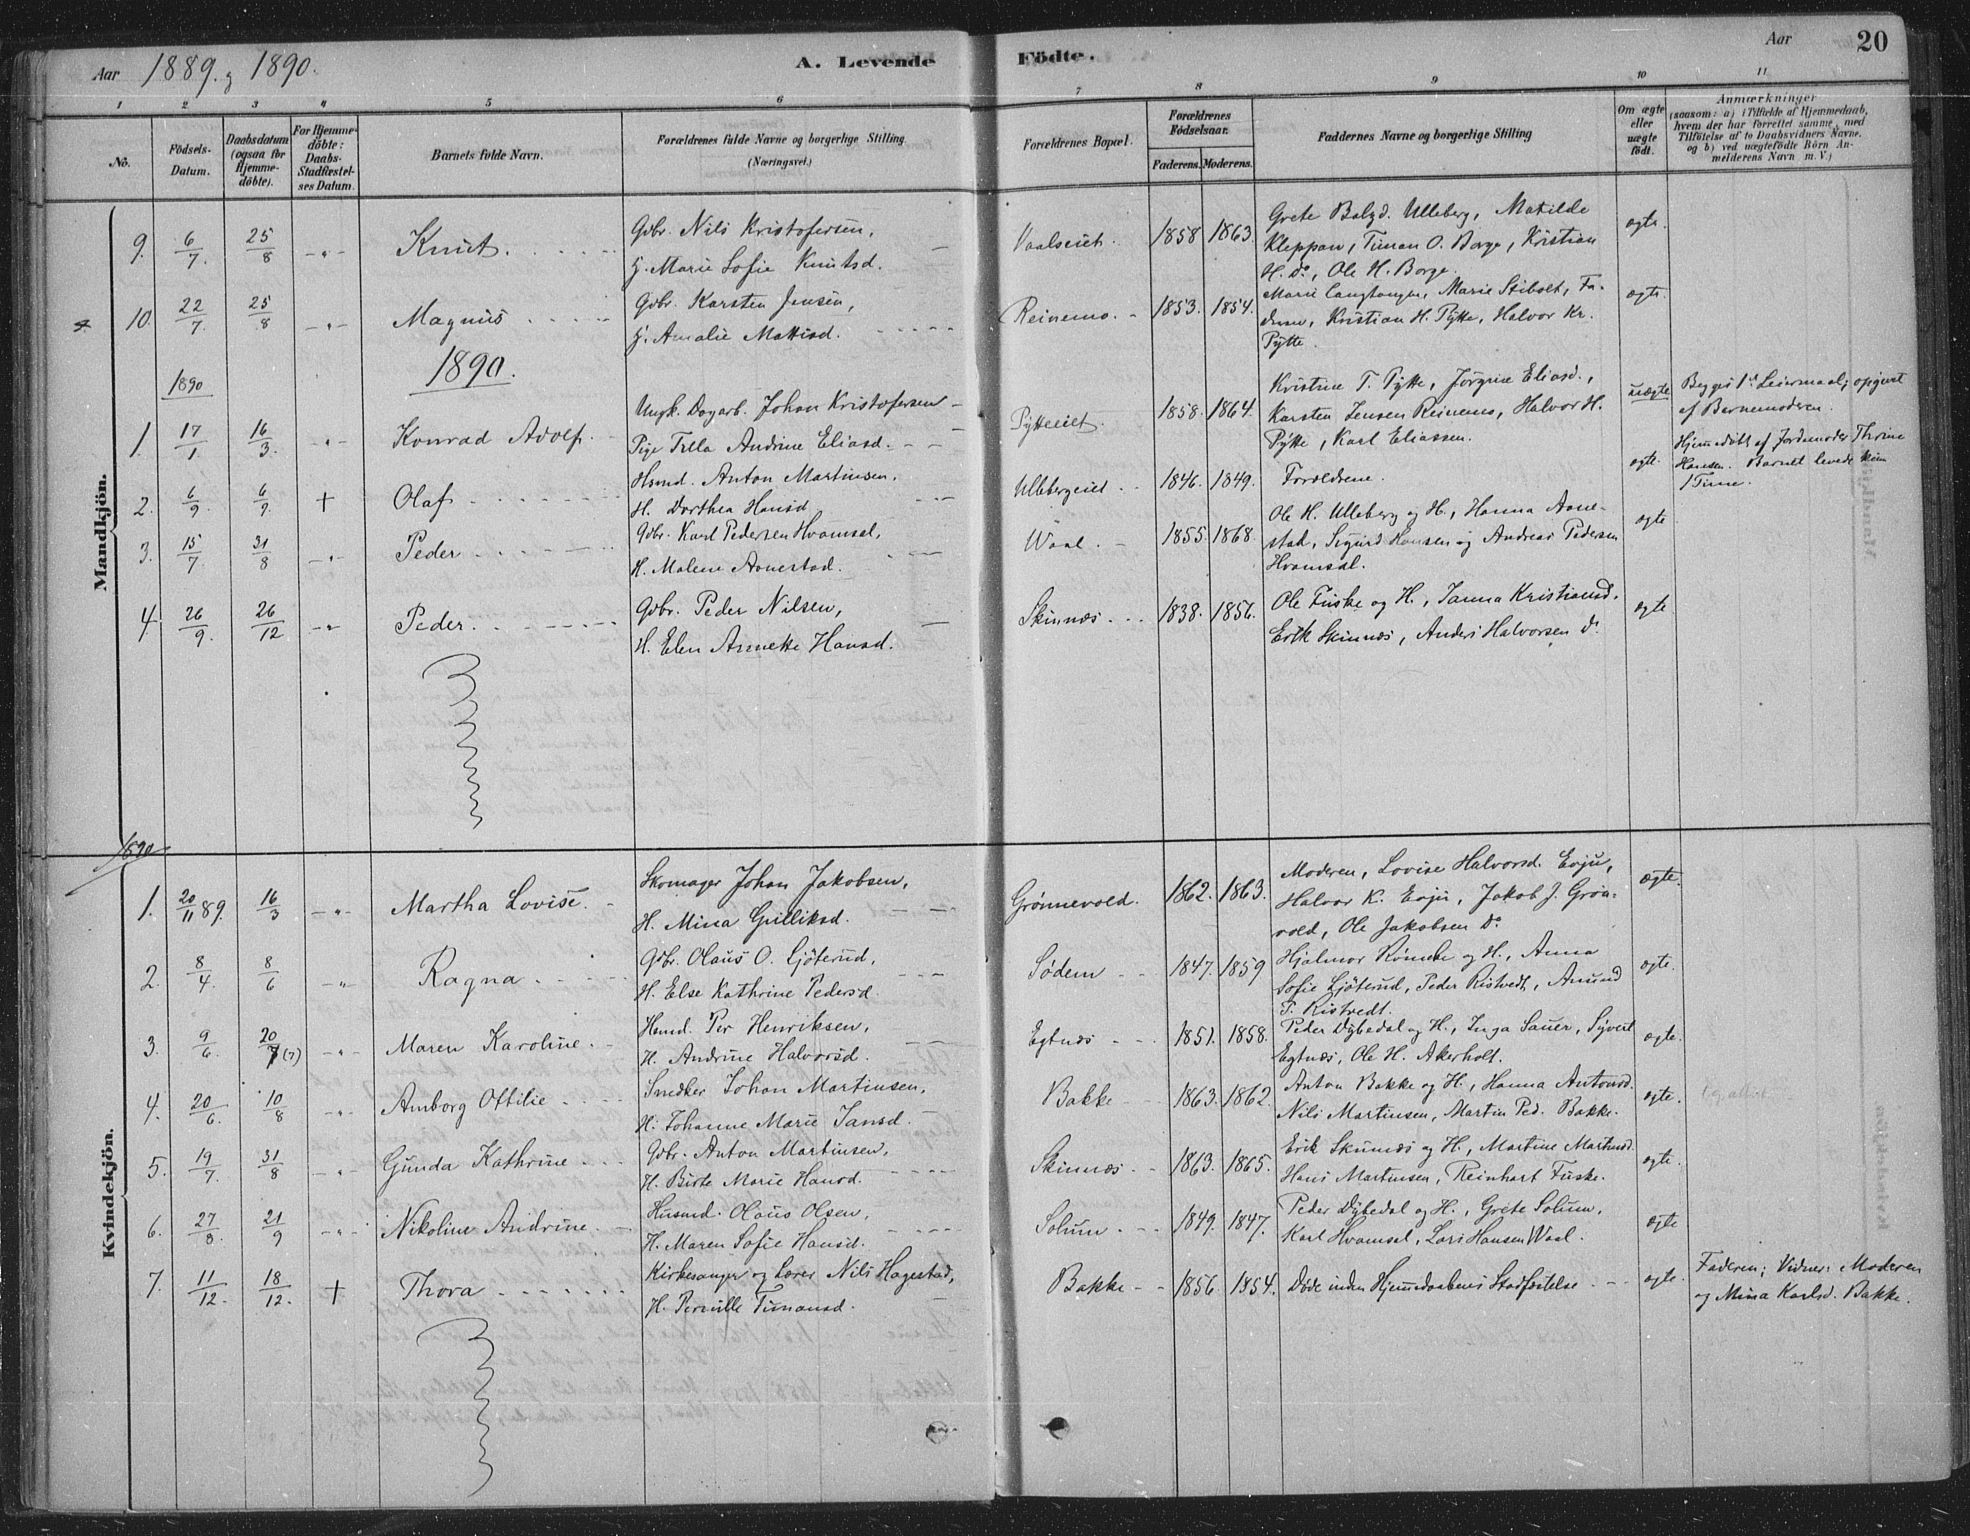 Aar 1889. & 1890. A. Levende Födte. Aar 20
1 2 3 4 5 6 7 8 9 10 11
No.
Födsels-Datum.
Daabsdatum (ogsaa for Hjemme-döbte).
For Hjemme-döbte: Daabs-Stadfæstel-ses Datum.
Barnets fulde Navn.
Forældrenes fulde Navne og borgerlige Stilling (Næringsvei.)
Forældrenes Bopæl.
Forældrenes Födselsaar.
Faderens. Moderens.
Faddernes Navne og borgerlige Stilling
Om ægte eller uægte födt.
Anmærkninger
(saasom: a) i Tilfælde af Hjemmedaab, hvem der har forrettet samme, med Tilföielse af to Daabsvidners Navne. og b) ved uægtefödte Börn Anmelderens Navn m. V.)
Mandkjön.
9. 6/7. 25/8 -"- Knut.
Gbr. Nils Kristofersen,
H. Marie Sofie Knutsd.
Vaalseiet. 1858 1863
Grete Balzd. Ulleberg, Matilde
Kleppan, Timan O. Borge, Kristian
H. Do, Ole H. Borge.
ægte.
10. 22/7. 25/8 -"- Magnus
Gbr. Karsten Jensen,
H. Amalie Mattisd.
Reinemo. 1853. 1854.
Marie Langtangen, Marie Stibolt, Fa-
deren, Kristian H. Pytte, Halvor Kr.
Pytte.
ægte.
1890 1890.
1. 17/1 16/3. -"- Konrad Adolf.
Ungk. Dagarb. Johan Kristofersen
Pige Tilla Andrine Eliasd.
Pytteeiet. 1858. 1864.
Kristine T. Pytte, Jörgine Eliasd.,
Karsten Jensen Reinemo, Halvor H.
Pytte, Karl Eliassen.
uægte
Begges 1ste Leiermaal; opgivet
af Barnemoderen.
2. 6/9 6/9 + Olaf
Hsmd. Anton Martinsen,
H. Dorthea Hansd
Ullebergeiet 1846. 1849. Forældrene.
ægte.
Hjemmedöbt af Jordemoder Thrine
Hansen. Barnet levede kun
1 Time.
3. 15/7 31/8 -"- Peder
Gbr. Karl Pedersen Hvamsal,
H. Malene Aanestad.
Waal. 1855. 1868.
Ole H. Ulleberg og H., Hanna Aane-
stad, Sigurd Hansen og Andreas Pedersen
Hvamsal.
ægte
4. 26/9. 26/12 -"- Peder.
Gbr. Peder Nilsen,
H. Elen Annette Hansd.
Skinnæs. 1838. 1856.
Ole Fuske og H., Janna Kristiansd.
Erik Skinnæs, Anders Halvorsen Do.
ægte
1890
Kvindekjön.
1. 20/11 89. 16/3 -"- Martha Lovise.
Skomager Johan Jakobsen,
H. Mina Gulliksd.
Grönnevold. 1862. 1863.
Moderen, Lovise Halvorsd. Evju,
Halvor K. Evju, Jakob J. Grön-
vold, Ole Jakobsen Do
ægte.
2. 8/4. 8/6 -"- Ragna
Gbr. Olaus O. Ljöterud,
H. Else Kathrine Pedersd.
Södem 1847. 1859
Hjalmar Rönneke og H., Anna
Sofie Ljöterud, Peder Ristvedt, Amund
T. Ristvedt.
ægte.
3. 9/6. 20/7 (7) -"- Maren Karoline.
Hsmd. Per Henriksen,
H. Andrine Halvorsd.
Egtnæs 1851. 1858.
Peder Dybedal og H., Inga Sauer, Syvert
Egtnæs, Ole H. Akerholt.
ægte.
4. 20/6. 10/8 -"- Amborg Ottilie
Snedker Johan Martinsen,
H. Johanne Marie Jansd.
Bakke 1863. 1862.
Anton Bakke og H., Hanna Antonsd.
Nils Martinsen, Martin Ped. Bakke.
ægte.
5. 19/7. 31/8 -"- Gunda Kathrine
Gbr. Anton Martinsen,
H. Birte Marie Hansd.
Skinnæs 1863. 1865.
Erik Skinnæs og H., Martine Martinsd.
Hans Martinsen, Reinhart Fuske.
ægte.
6. 27/8 21/9 -"- Nikoline Andrine.
Husmd. Olaus Olsen,
H. Maren Sofie Hansd.
Solum 1849. 1847.
Peder Dybedal og H., Grete Solum,
Karl Hvamsal, Lars Hansen Waal.
ægte
7. 11/12. 18/12. + Thora
Kirkesanger og Lærer Nils Hagestad,
H. Pernille Timansd.
Bakke 1856. 1854. Döde inden Hjemmedaabens Stadfæstelse
ægte.
Faderen; Vidner: Moderen
og Mina Karlsd. Bakke.